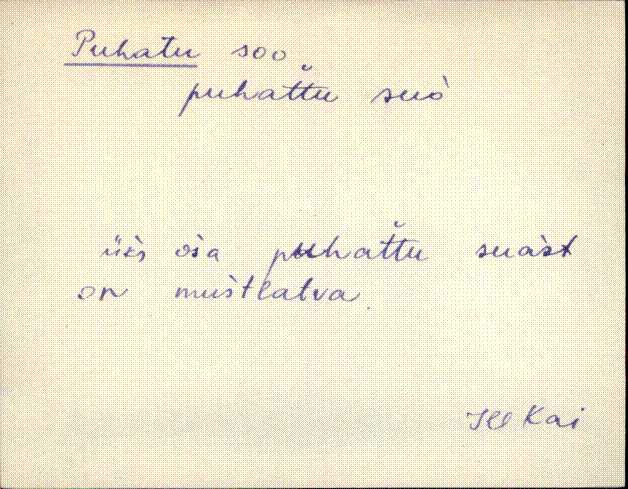 Puhatu soo
puhat̆t̆u suò
üks osa puhat̆t̆u suast
on mustlatva
Kai